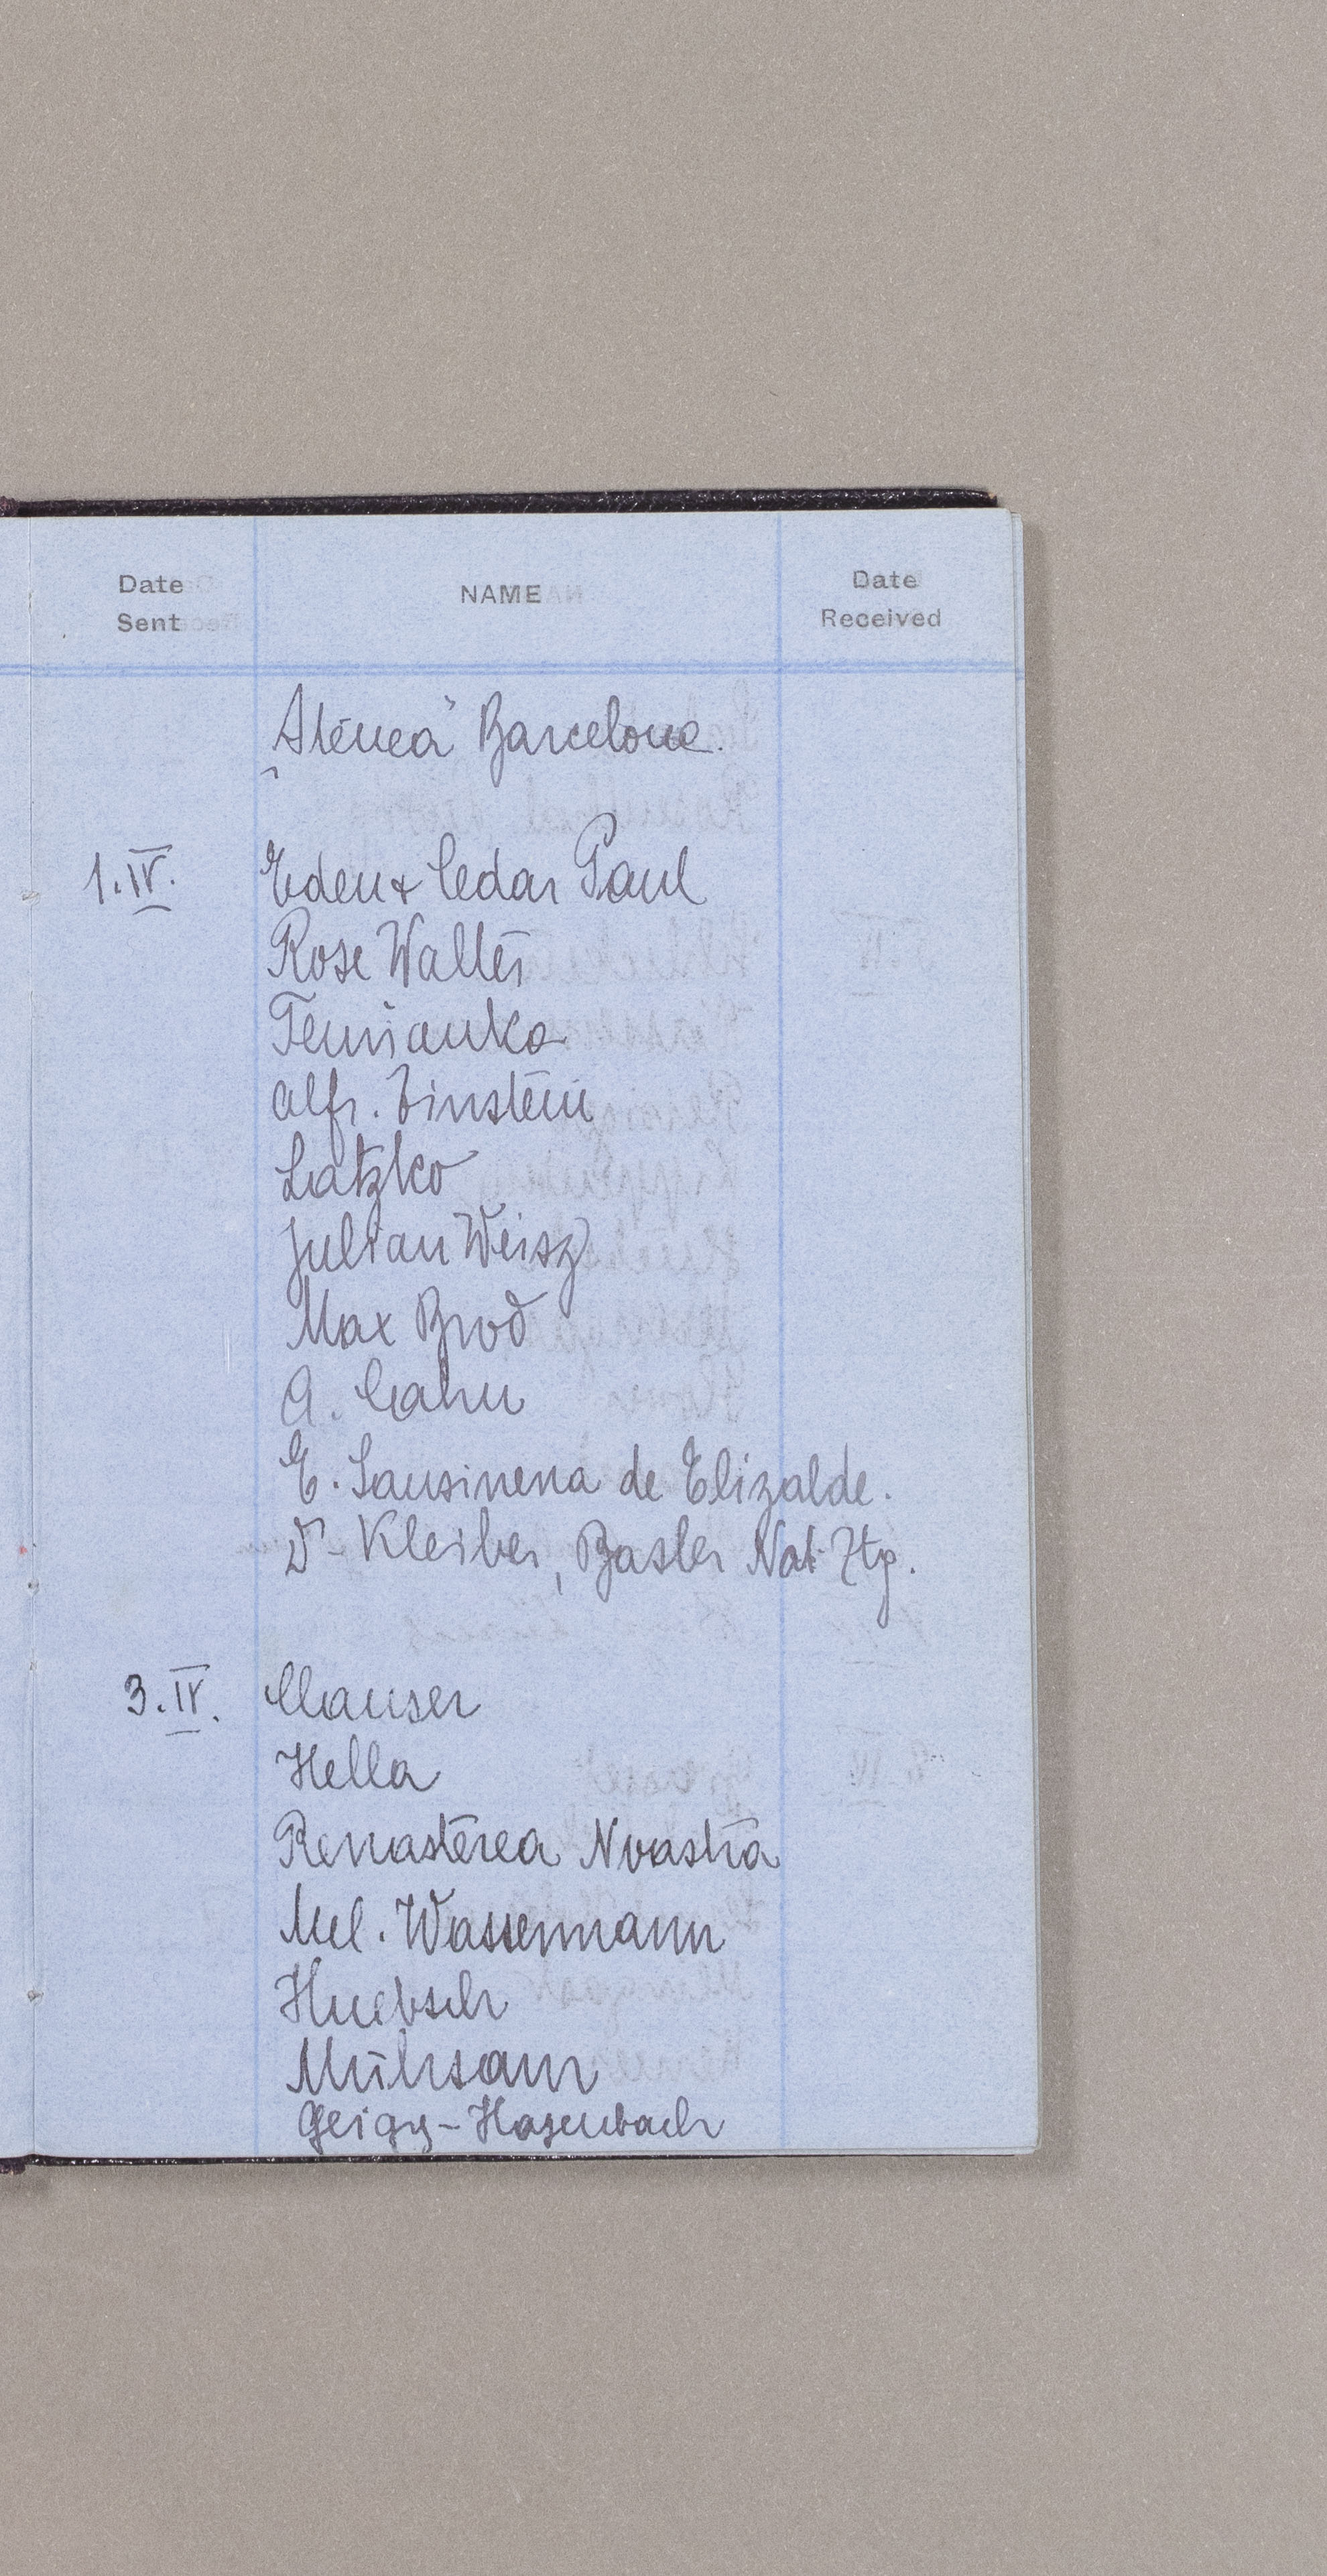 Date Sent
NAME
Date Received
„Atenea" Barcelona.
1.IV. Eden & Cedar Paul
Rose Walter
Temianka
Alfr. Einstein
Latzko
Julian Weisz
Max Brod
A. Cahn
E. Sansinena de Elizalde.
Dr Kleiber, Basler Nat Ztg.
3.IV. Clauser
Hella
Renasterea Noastră
Mel. Wassermann
Huebsch
Mühsam
Geigy-Hagenbach